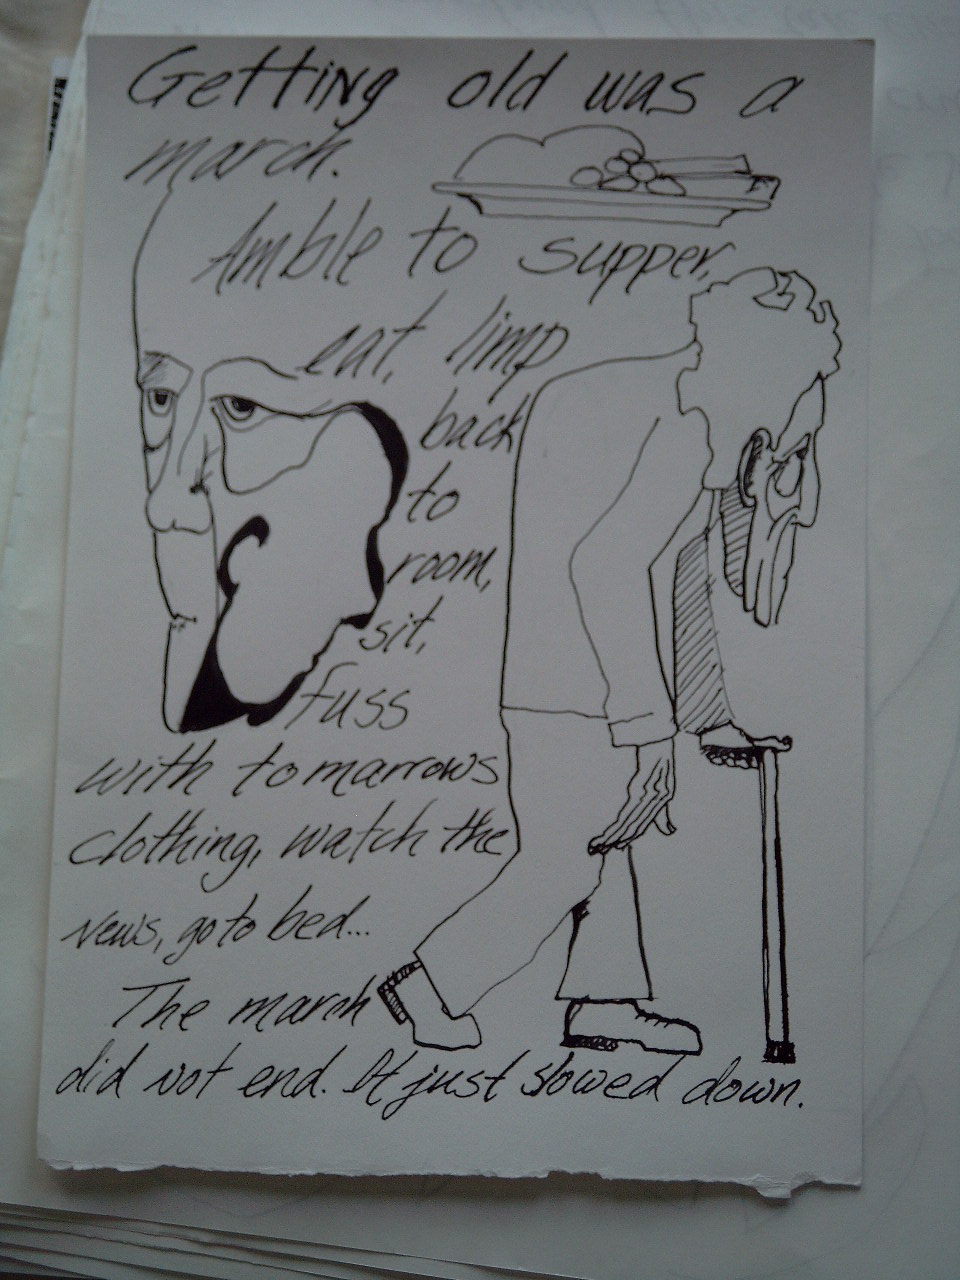 Getting old was a
march.
Amble to supper,
eat, limp
back
to
room,
sit,
fuss
with tomarrows
clothing, watch the
news, go to bed...
The march
did not end. It just slowed down.